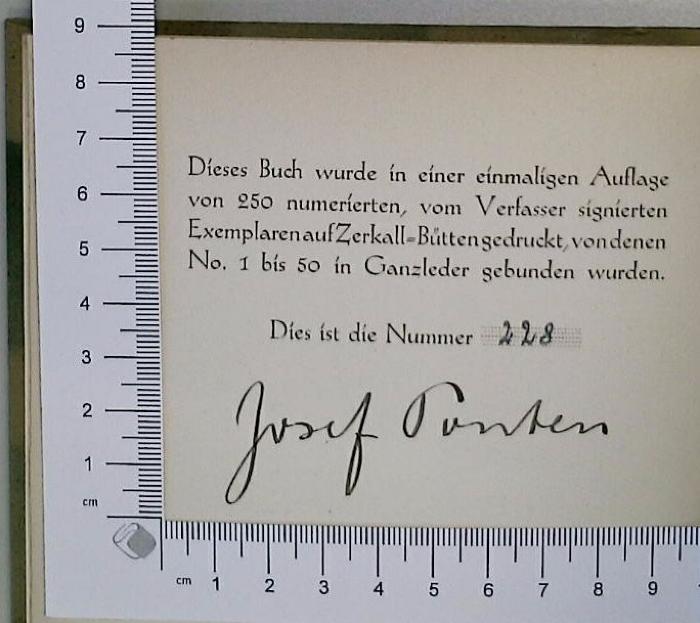 Dieses Buch wurde in einer einmaligen Auflage
von 250 numerierten, vom Verfasser signierten
Exemplaren auf Zerkall-Bütten gedruckt, von denen
No. 1 bis 50 in Ganzleder gebunden wurden.
Dies ist die Nummer 228
Josef Ponten
9
8
7
6
5
4
3
2
1
cm
cm 1 2 3 4 5 6 7 8 9